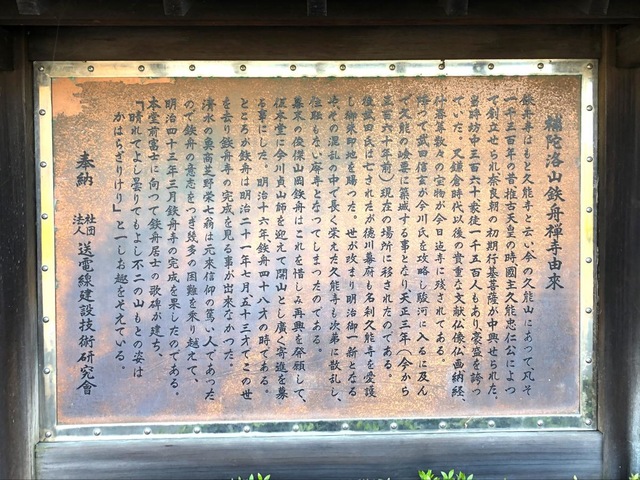 補陀洛山鉄舟禅寺由来
鉄舟寺はもと久能寺と云い今の久能山にあつて、凡そ
一千三百年の昔推古天皇の時國主久能忠仁公によつ
て創立せられ奈良朝の初期行基菩薩が中興せられた、
当時坊中三百六十家徒一千五百人もあり、豪盛を誇つ
ていた。又鎌倉時代以後の貴重な文献仏像仏画納経、
行基菩薩の宝物が今日迄寺に残されてある。
降つて武田信玄が今川氏を攻略し駿河に入るに及ん
で久能の嶮要に築城する事となり、天正三年(今から
三百六十年前)現在の場所に移されたのである。
後武田氏は亡されたが徳川幕府も名利久能寺を愛護
し御朱印地を賜つた。世が改まり明治御一新となる
や、その混乱の中で長く栄えた久能寺も次第に散乱し、
住職もない廃寺となつてしまつたのである。
幕末の俊傑山岡鉄舟はこれを惜しみ再興を発願して、
仮本堂に今川貞山師を迎えて開山とし廣く寄進を募
る事にした。明治十六年鉄舟四十八才の時である。
ところが鉄舟は明治二十一年七月五十三才でこの世
を去り鉄舟寺の完成を見る事が出来なかつた。
清水の魚商芝野栄七翁は元来信仰の篤い人であった
ので鉄舟の意志をつぎ幾多の困難を乗り越えて、
明治四十三年三月鉄舟寺の完成を果したのである。
本堂前富士に向つて鉄舟居士の歌碑が建ち、
「晴れてよし曇りてもよし不二の山もとの姿は
かはらざりけり」と一しお趣をそえている。
奉納 社団法人 送電線建設技術研究會